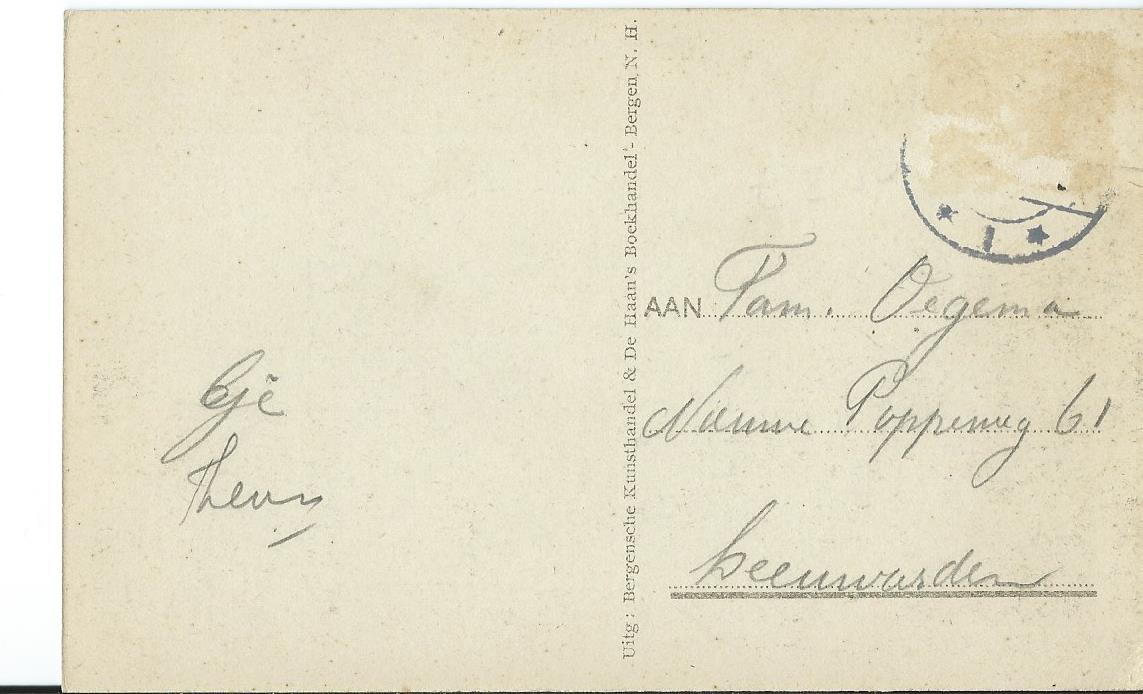 Uitg: Bergensche Kunsthandel & De Haan's Boekhandel - Bergen, N. H.
AAN Fam. Oegema
Nieuwe Poppeweg 61
Leeuwarden
1